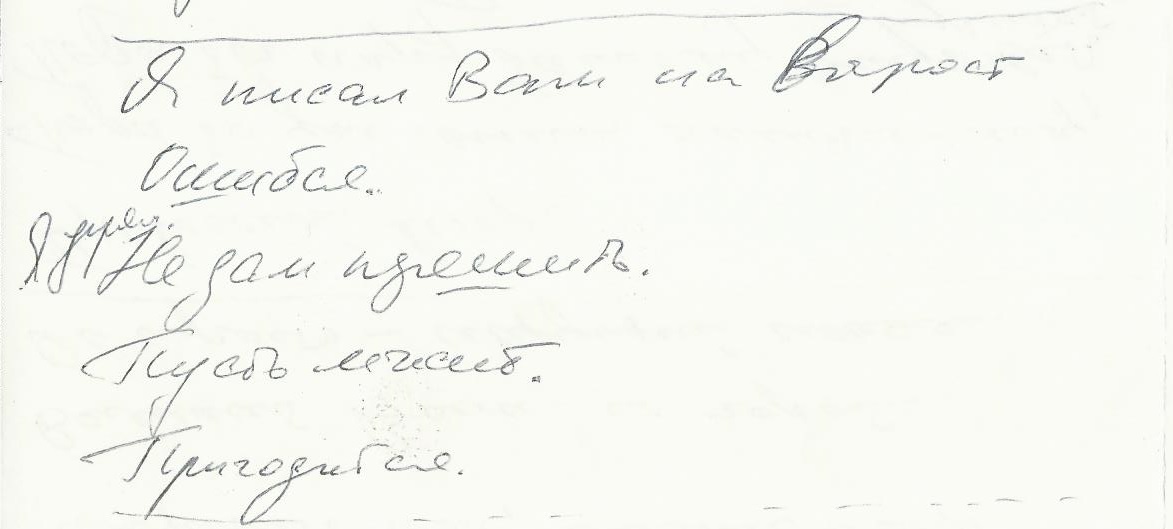 Я писал Вам на Вырост
Ошибся.
Я
Не дам перешить.
Пусть лежит.
Пригодится.